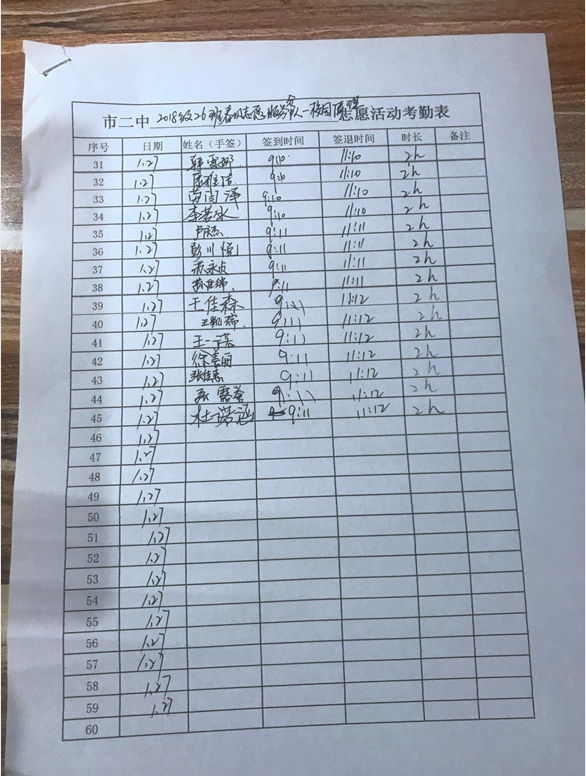 市二中 2018级26班春风志愿服务队—校园 志愿活动考勤表
序号 日期 姓名（手签） 签到时间 签退时间 时长 备注
31 1.27 9:10 11:10 2h
32 1.27 9:10 11:10 2h
33 1.27 9:10 11:10 2h
34 1.27 9:10 11:10 2h
35 1.27 9:11 11:11 2h
36 1.27 9:11 11:11 2h
37 1.27 9:11 11:11 2h
38 1.27 9:11 11:11 2h
39 1.27 王佳森 9:11 11:12 2h
40 1.27 9:11 11:12 2h
41 1.27 9:11 11:12 2h
42 1.27 徐美丽 9:11 11:12 2h
43 1.27 9:11 11:12 2h
44 1.27 9:11 11:12 2h
45 1.27 杜诺涵 9:11 11:12 2h
46 1.27
47 1.27
48 1.27
49 1.27
50 1.27
51 1.27
52 1.27
53 1.27
54 1.27
55 1.27
56 1.27
57 1.27
58 1.27
59 1.27
60